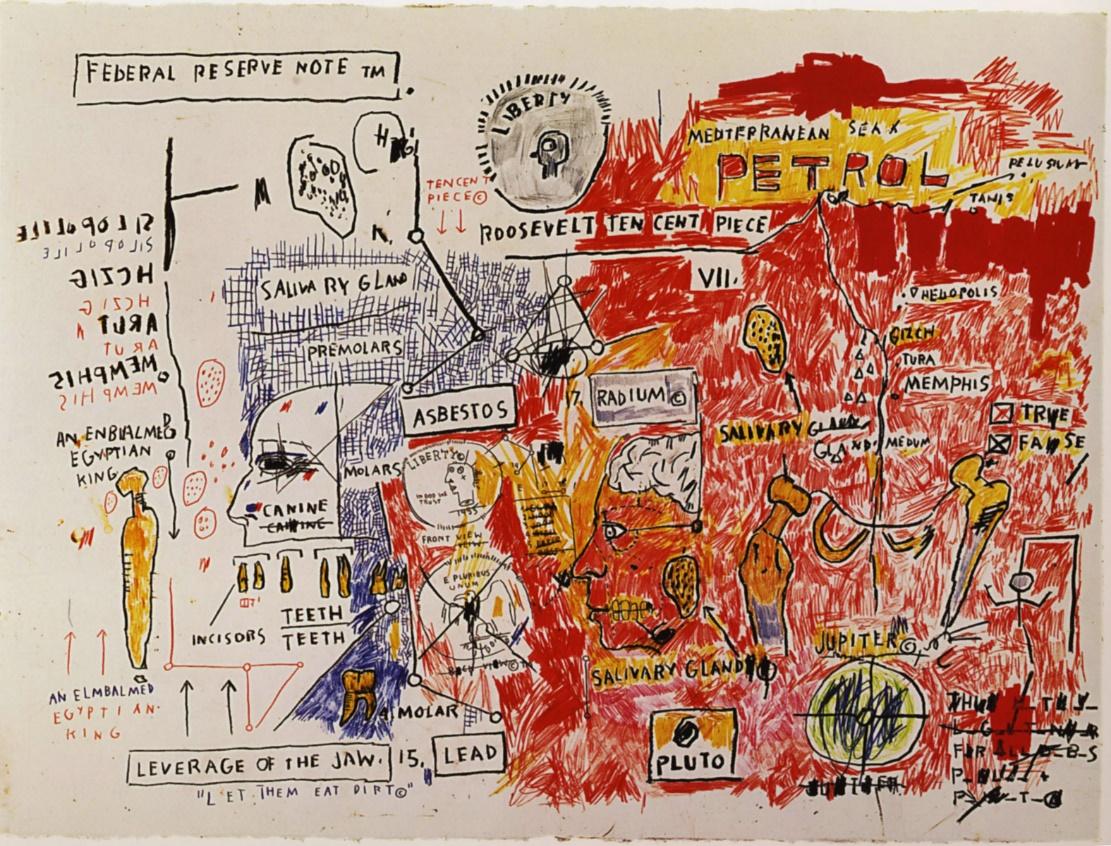 FEDERAL RESERVE NOTE TM.
LIBERTY
MEDITERRANEAN SEA X
PETROL
PELUSIUM
TANIS
TEN CENT
PIECE©
ROOSEVELT TEN CENT PIECE
M
K.
VII.
SALIVARY GLAND
PREMOLARS
HELIOPOLIS
GIZEH
TURA
MEMPHIS
MEDUM
MEMPHIS
MEMPHIS
ASBESTOS
RADIUM ©
SALIVARY GLAND
GLAND
TRUE
FALSE
AN ENBALMED
EGYPTIAN
KING
MOLARS
LIBERTY
IN GOD WE
TRUST
1955
FRONT VIEW
CANINE
CANINE
E PLURIBUS
UNUM
INCISORS
TEETH
TEETH
JUPITER©
SALIVARY GLAND
AN ELMBALMED
EGYPTIAN
KING
MOLAR
LEVERAGE OF THE JAW. 15.
LEAD
PLUTO
"LET THEM EAT DIRT©"
JUPITER